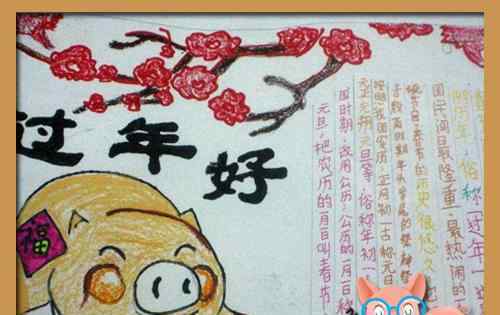 过年好
福
历年,俗称“过年”这
国民间最隆重、最热闹的
节日。春节的历史很悠久,它
于殷商时期年头岁尾的祭神祭
按照我国农历,正月初一古称元日
元朔元旦等,俗称年初一
国时期,改用公历,公历的一月一日称
元旦,把农历的一月一日叫春节